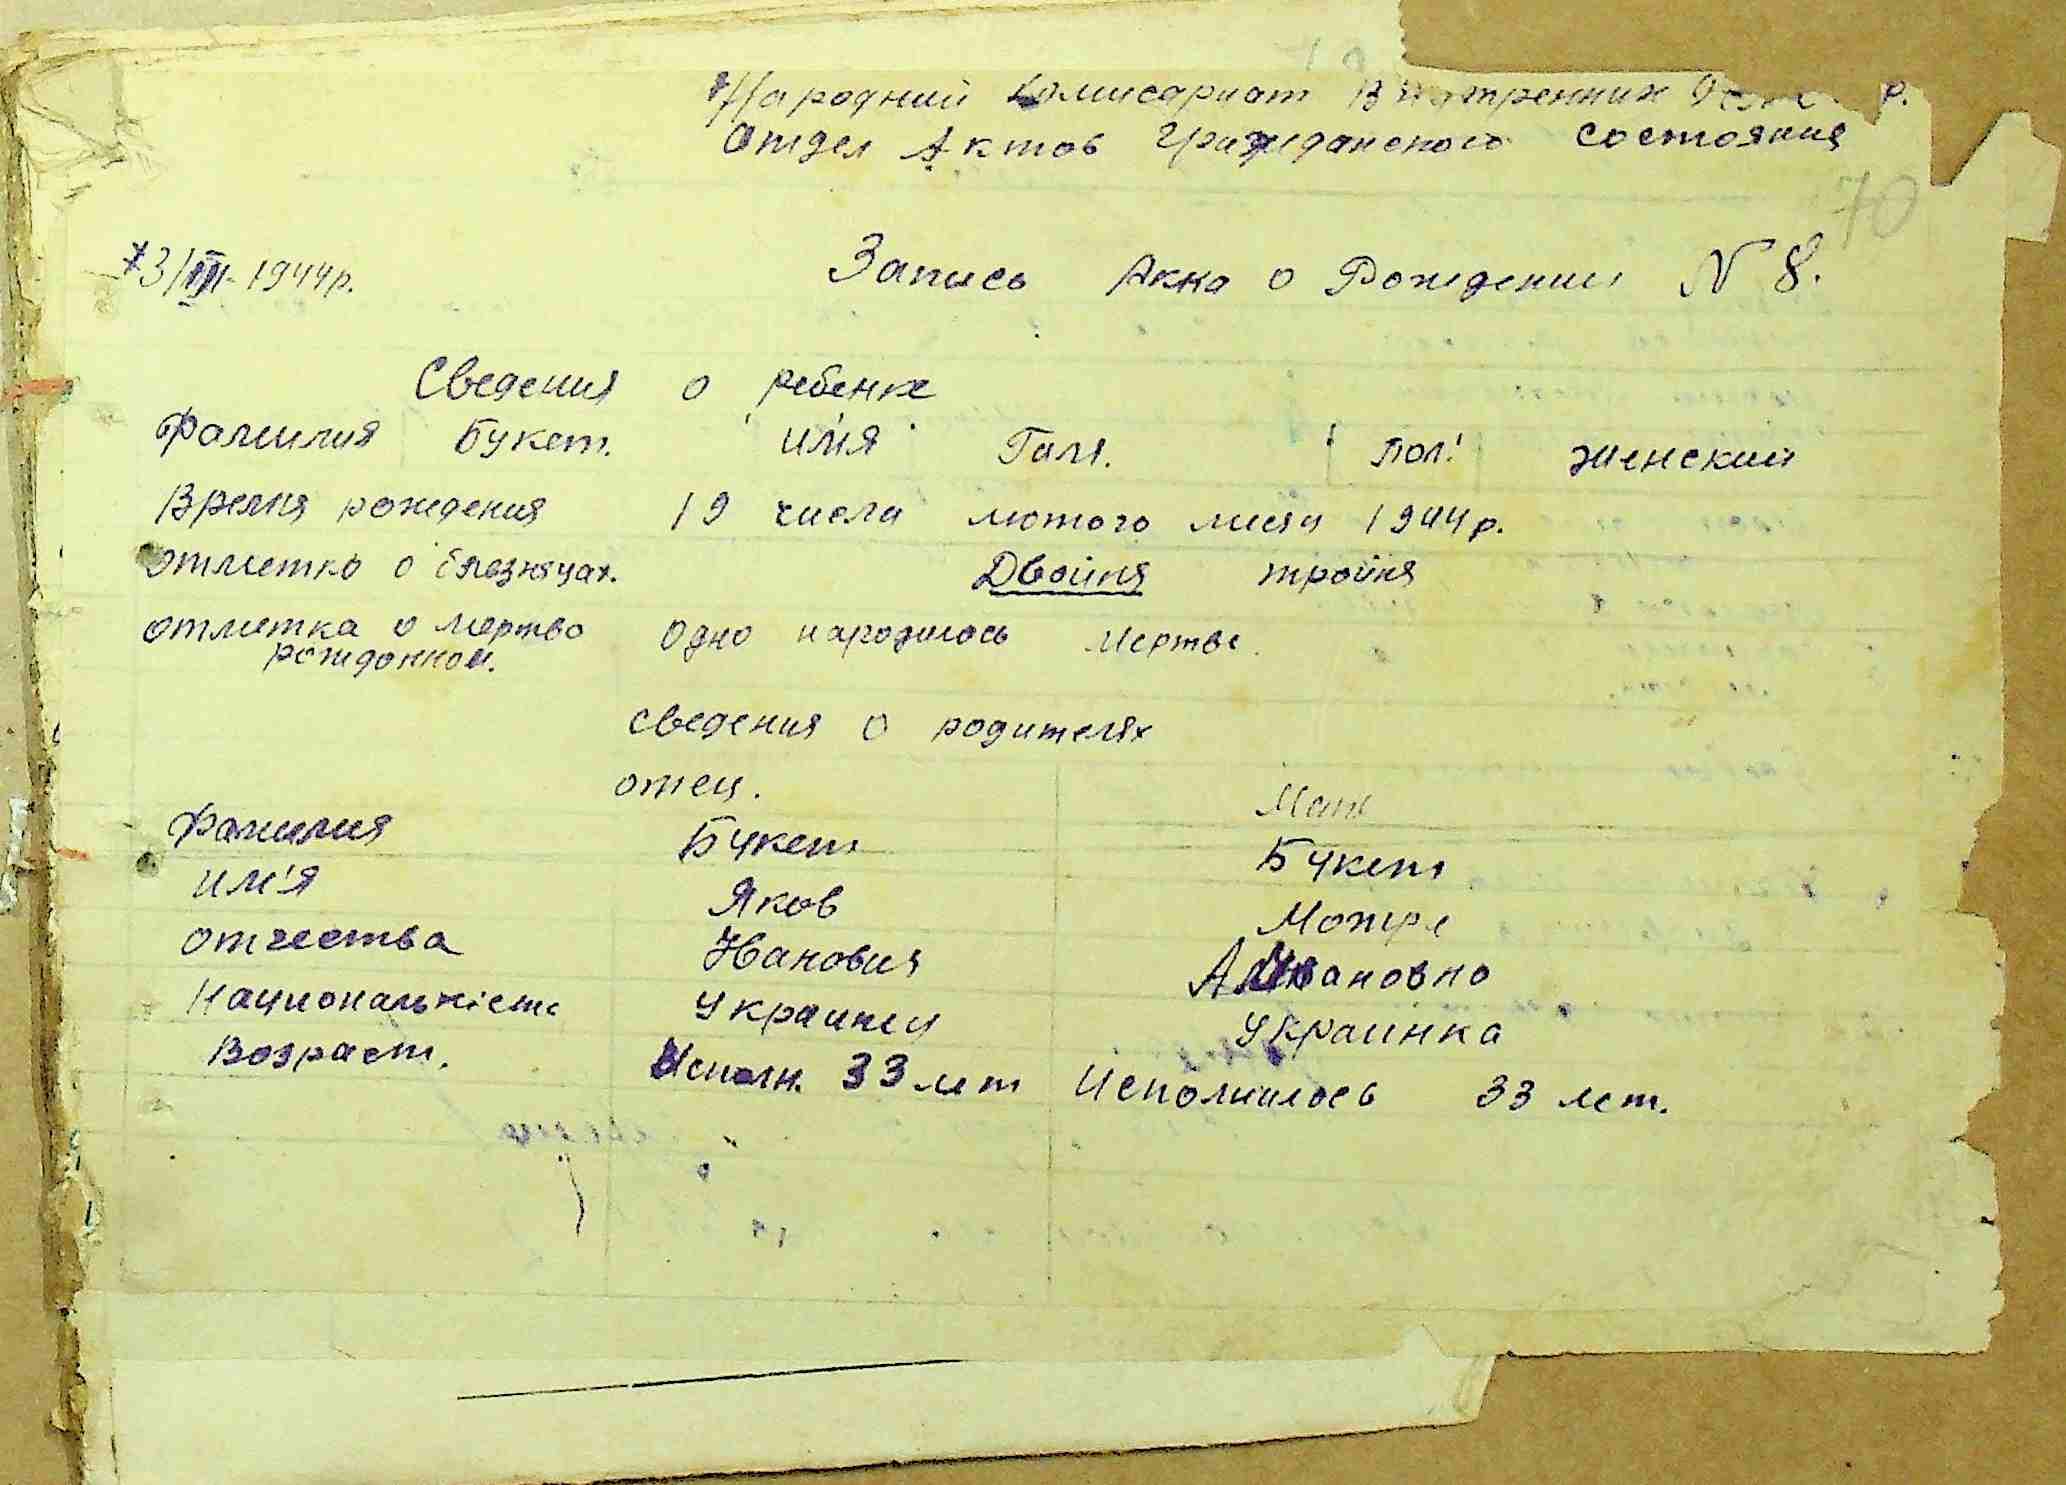 Народний Комисариат Внутренних
Отдел Актов Гражданского Состояния
70
3/III-1944р. Запись Акка о Рождении N 8.
Сведения о ребенке
Фамилия Букет. им'я Галя. пол! женский
Время рождения 19 числа лютого мися 1944р.
отметка о близняцах. Двойня тройня
отметка о мертво одно народилось мертве.
рожданном.
Сведения о родителях
отец. Мать
Фамилия Букет Букет
им'я Яков Мотря
отчества Иванович
Национальність Украинец Украинка
Возраст. Исполн. 33 лет Исполнилось 33 лет.